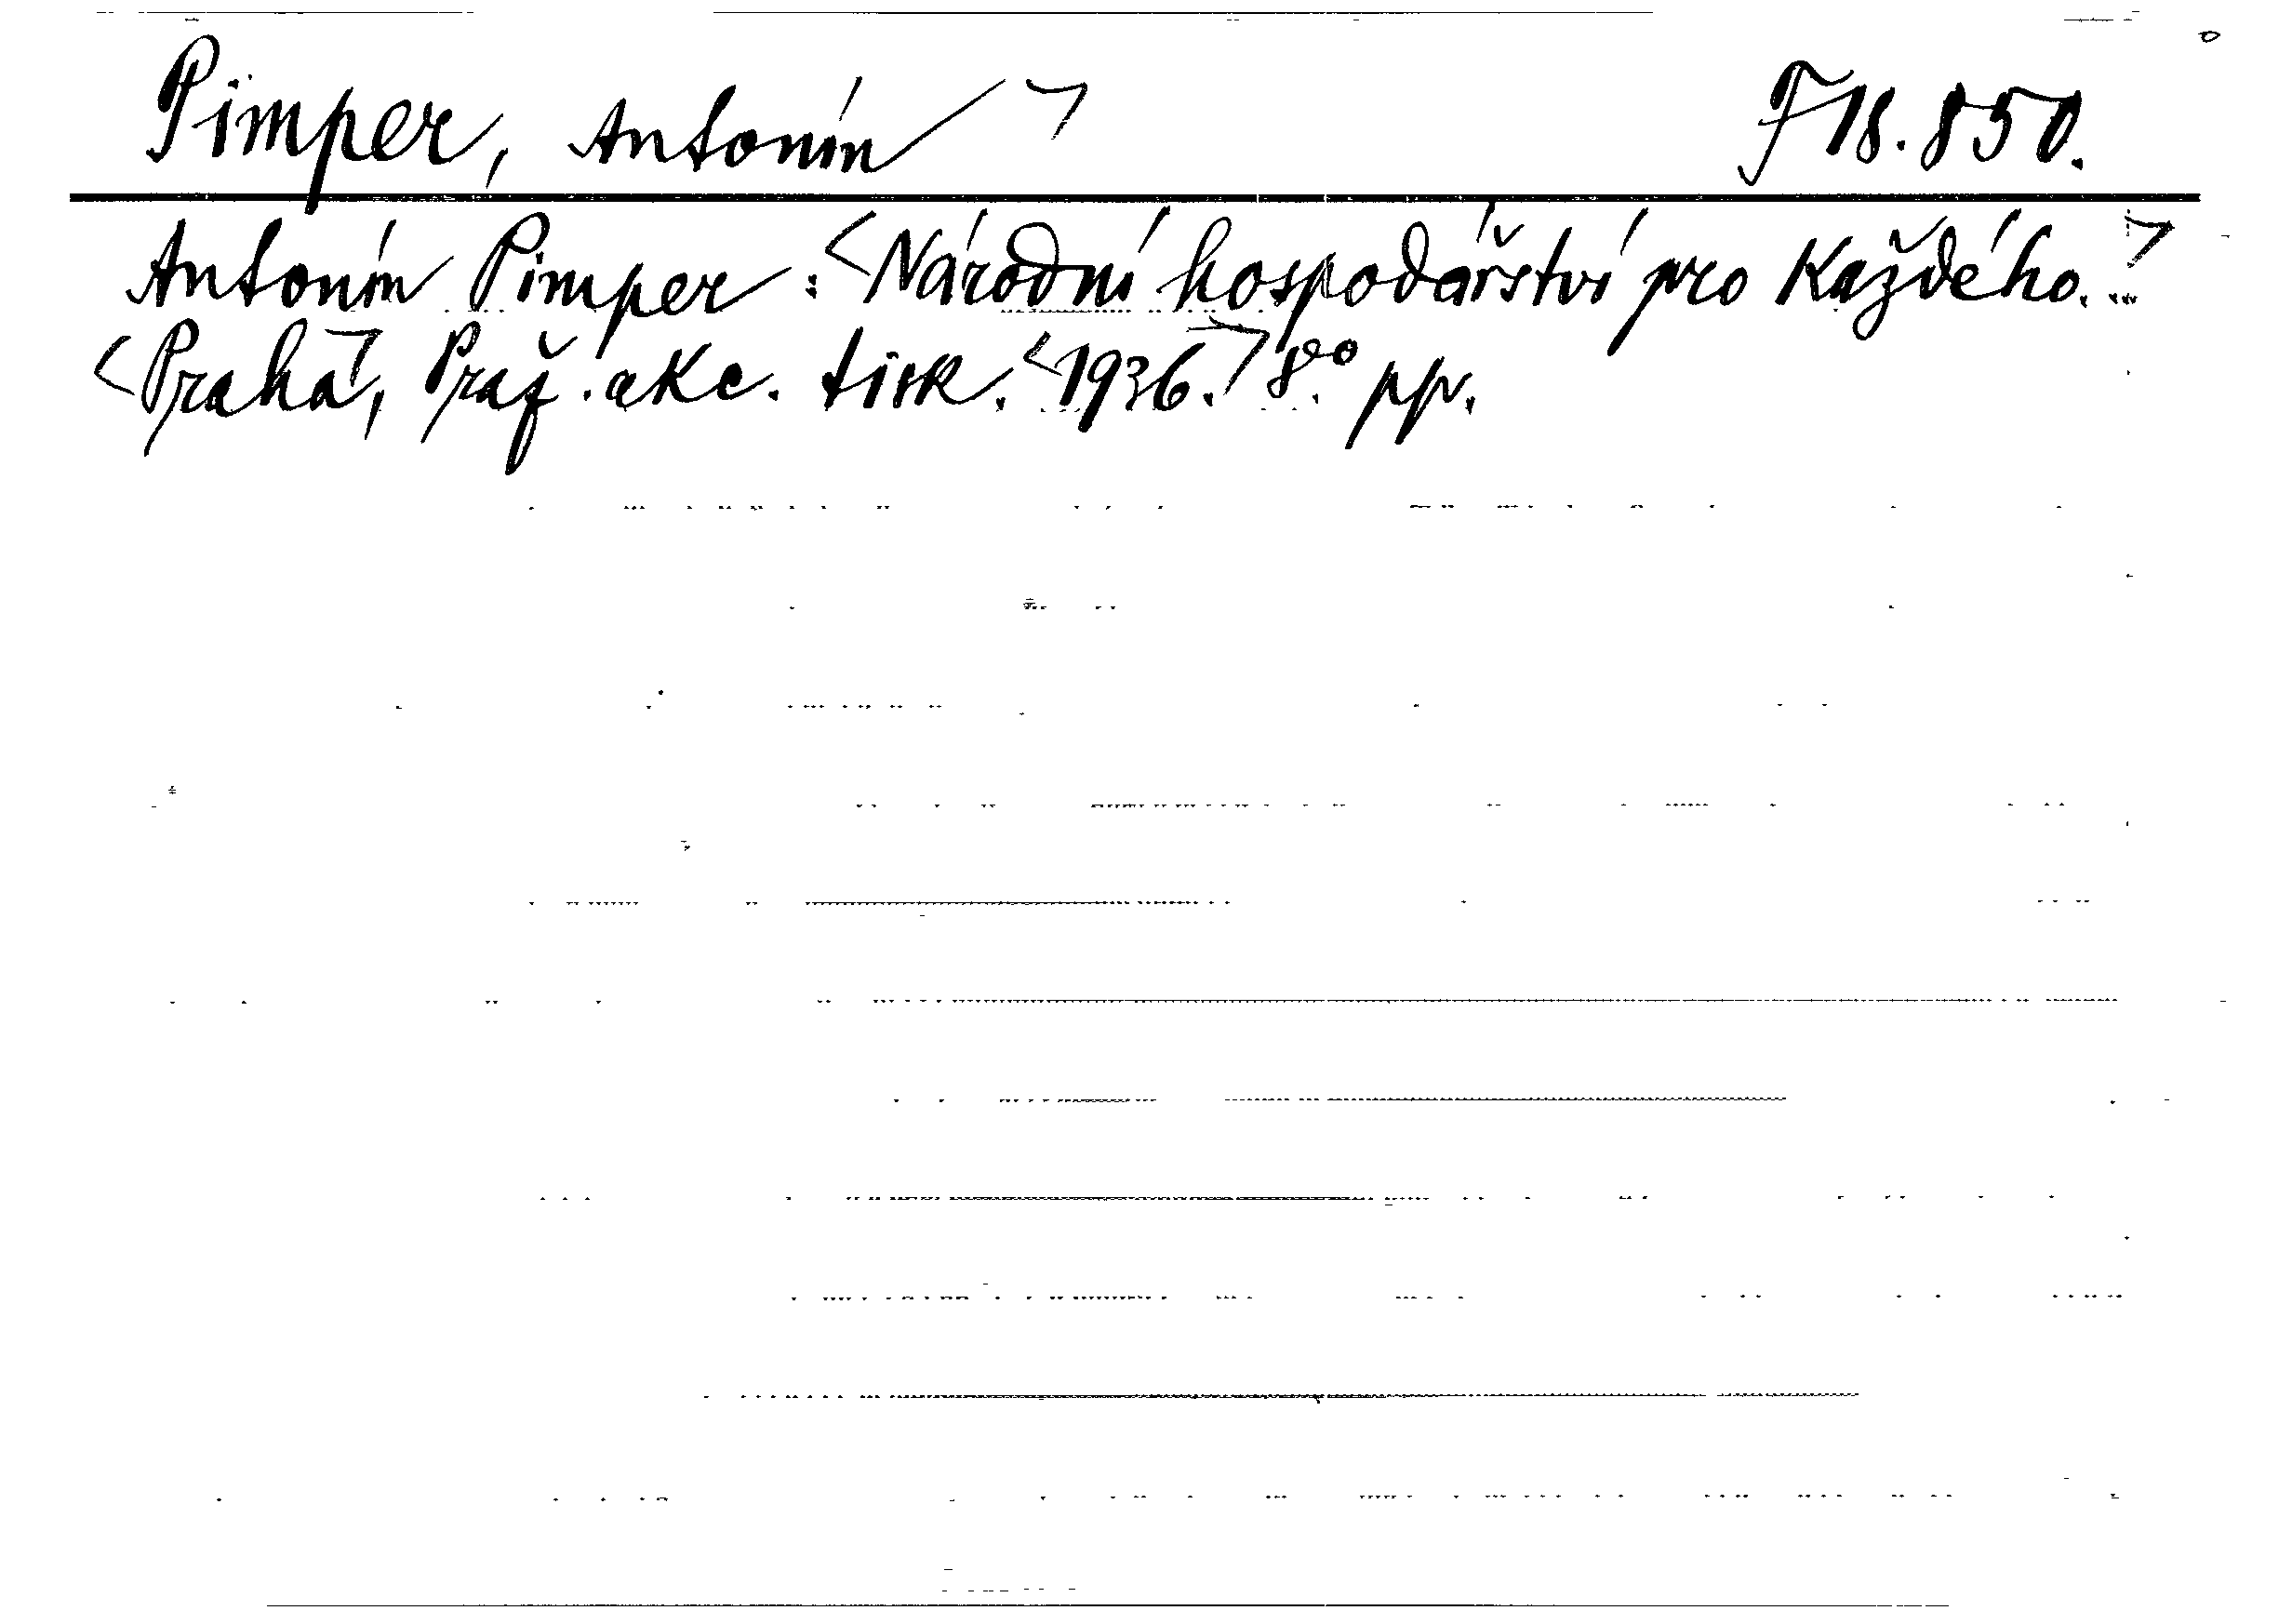 Pimper, Antonín > F 18.850.
Antonín Pimper : <Národní hospodářství pro každého.>
<Praha>, Praž. akc. tisk. <1936.> 8.° pp.